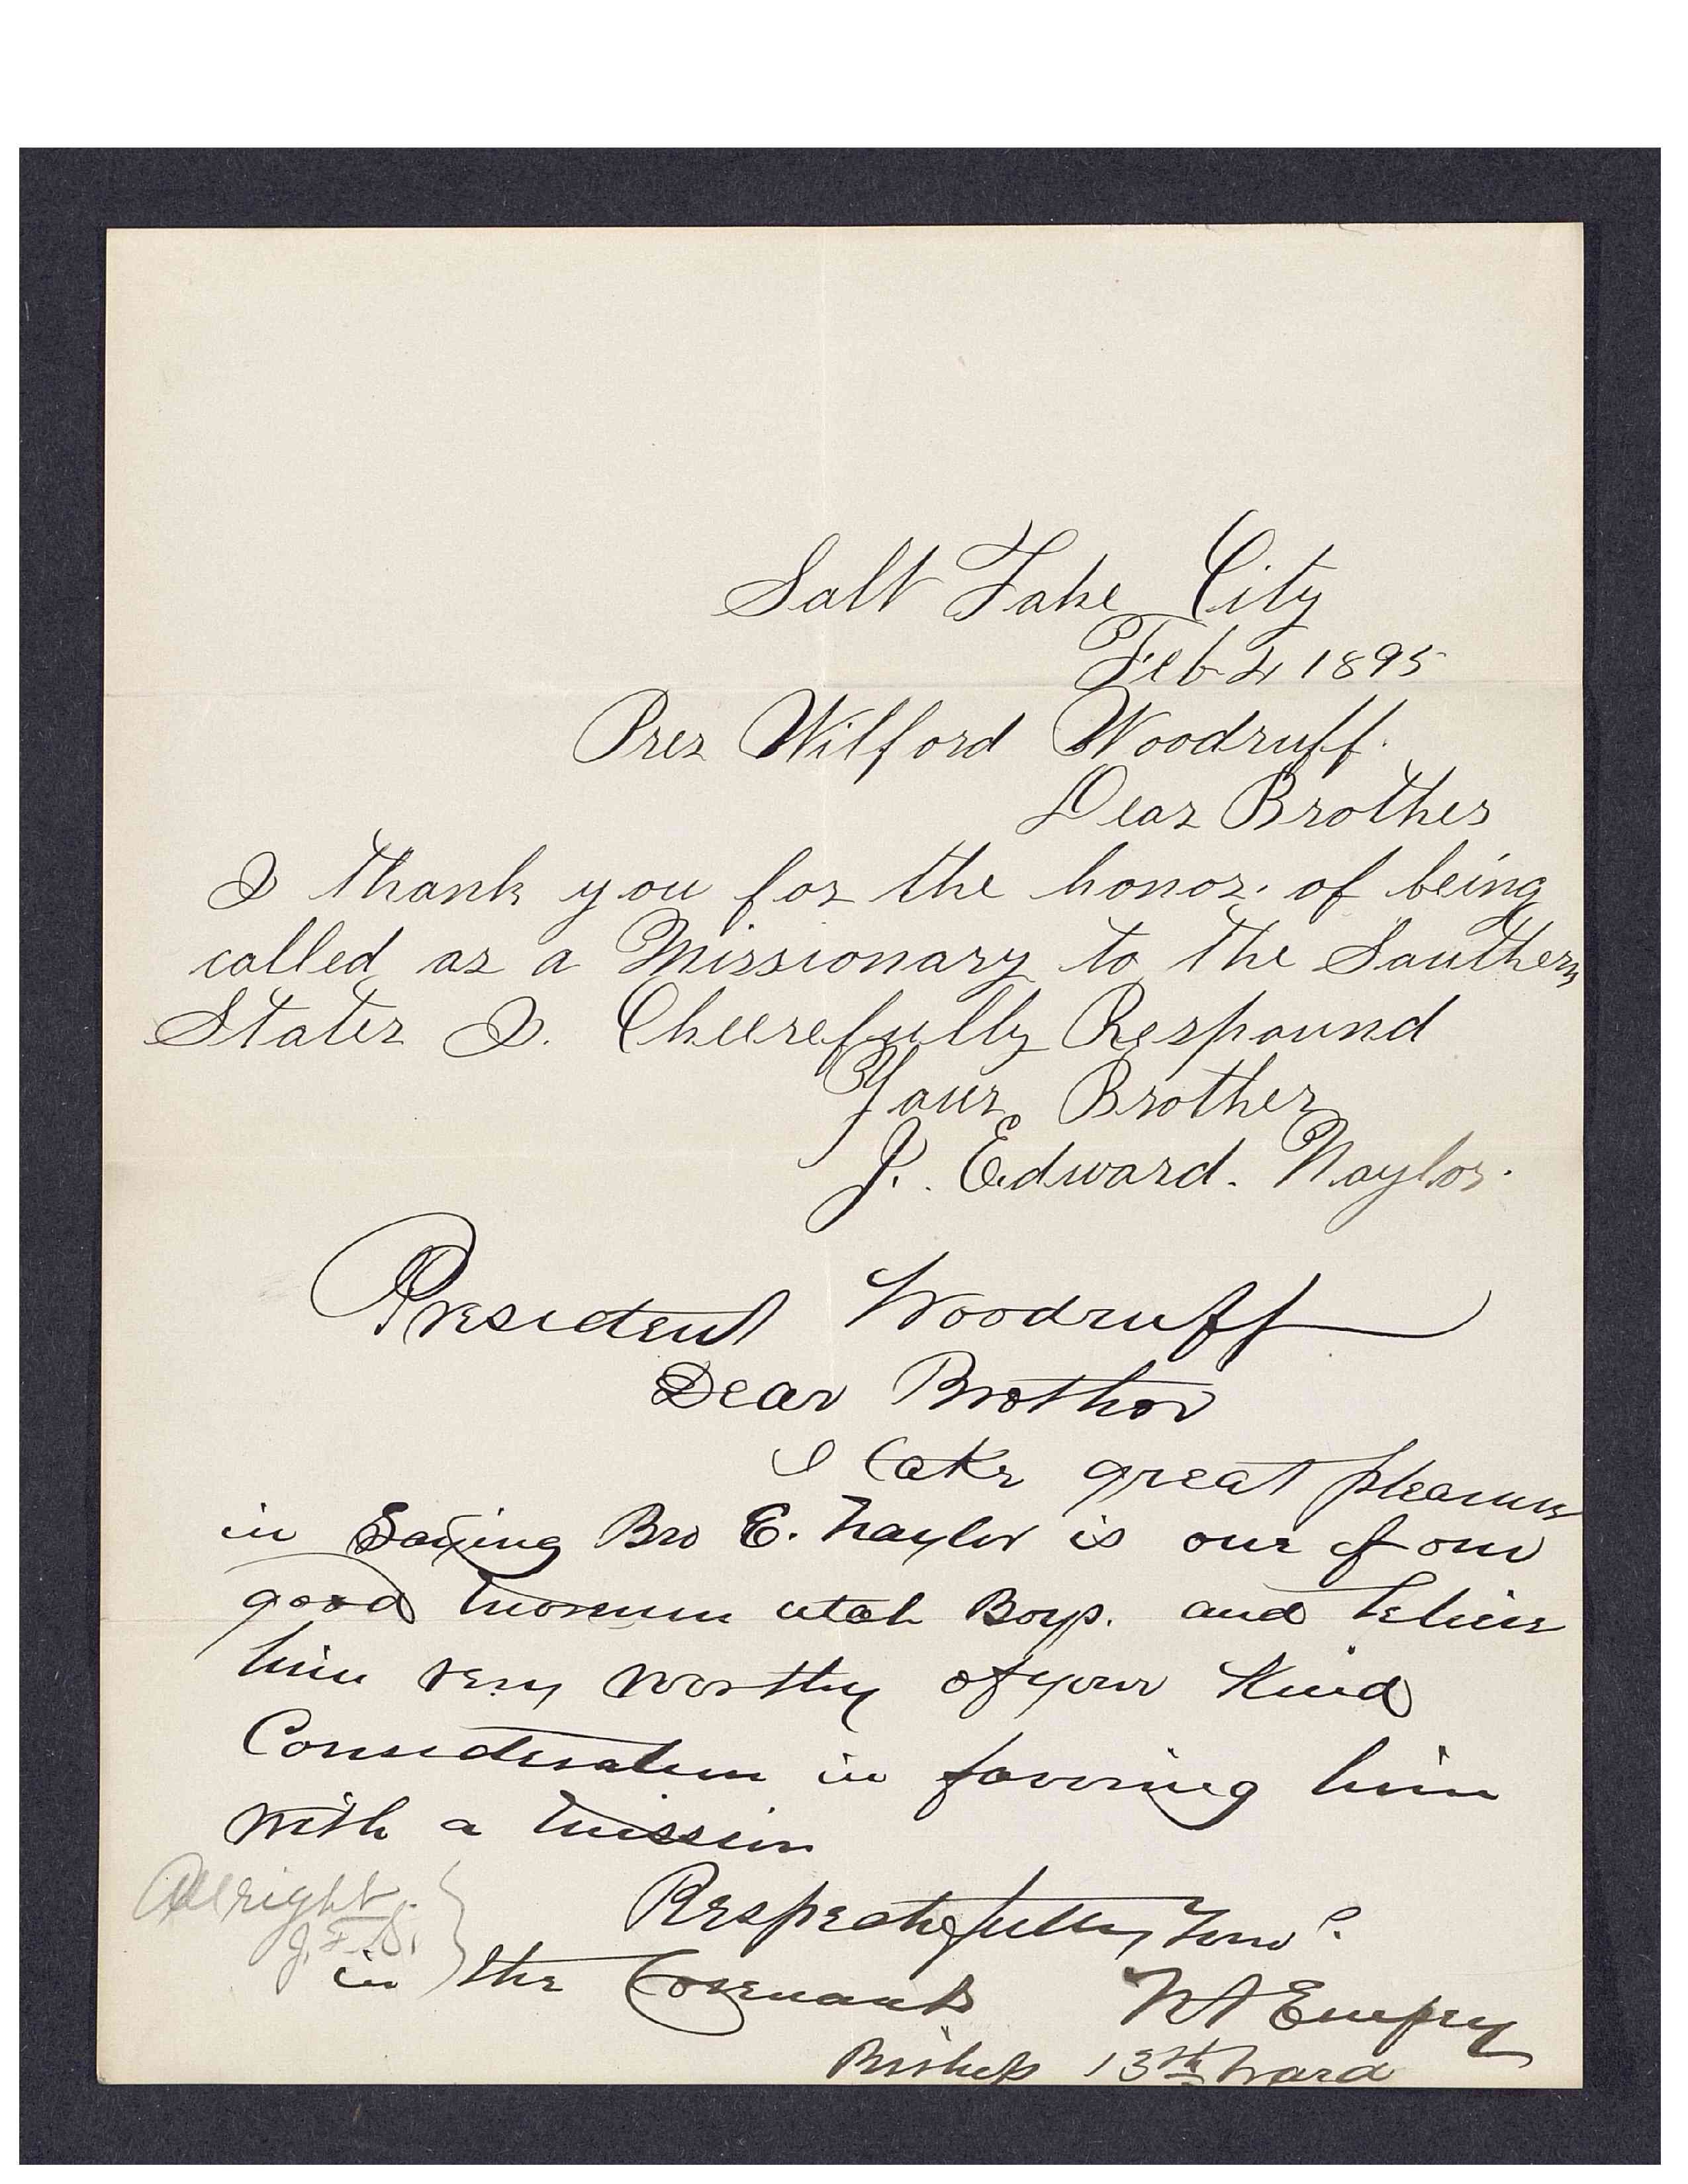 Salt Lake City
Feb 4 1895
Pres Wilford Woodruff.
Dear Brother
I thank you for the honor. of being
called as a Missionary to the Southern
States I. Cheerefully Respound
Your Brother
J. Edward. Naylor.
President Woodruff
Dear Brother
I take great pleasure
in Saying Bro E. Naylor is one of our
good mormon utah Boys. and beleive
him very worthy of your Kind
Consideration in favoring him
with a mission
Respectfully Your
in the Covenant
Bishop 13th Ward
Allright.
J. F. S.